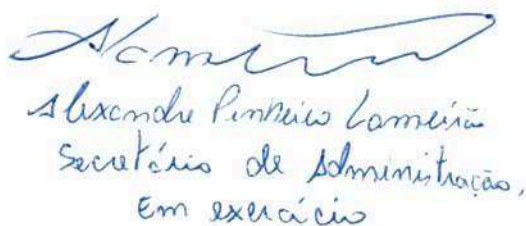 Alexandre Pinheiro Lameirão
Secretário de Administração,
Em exercício